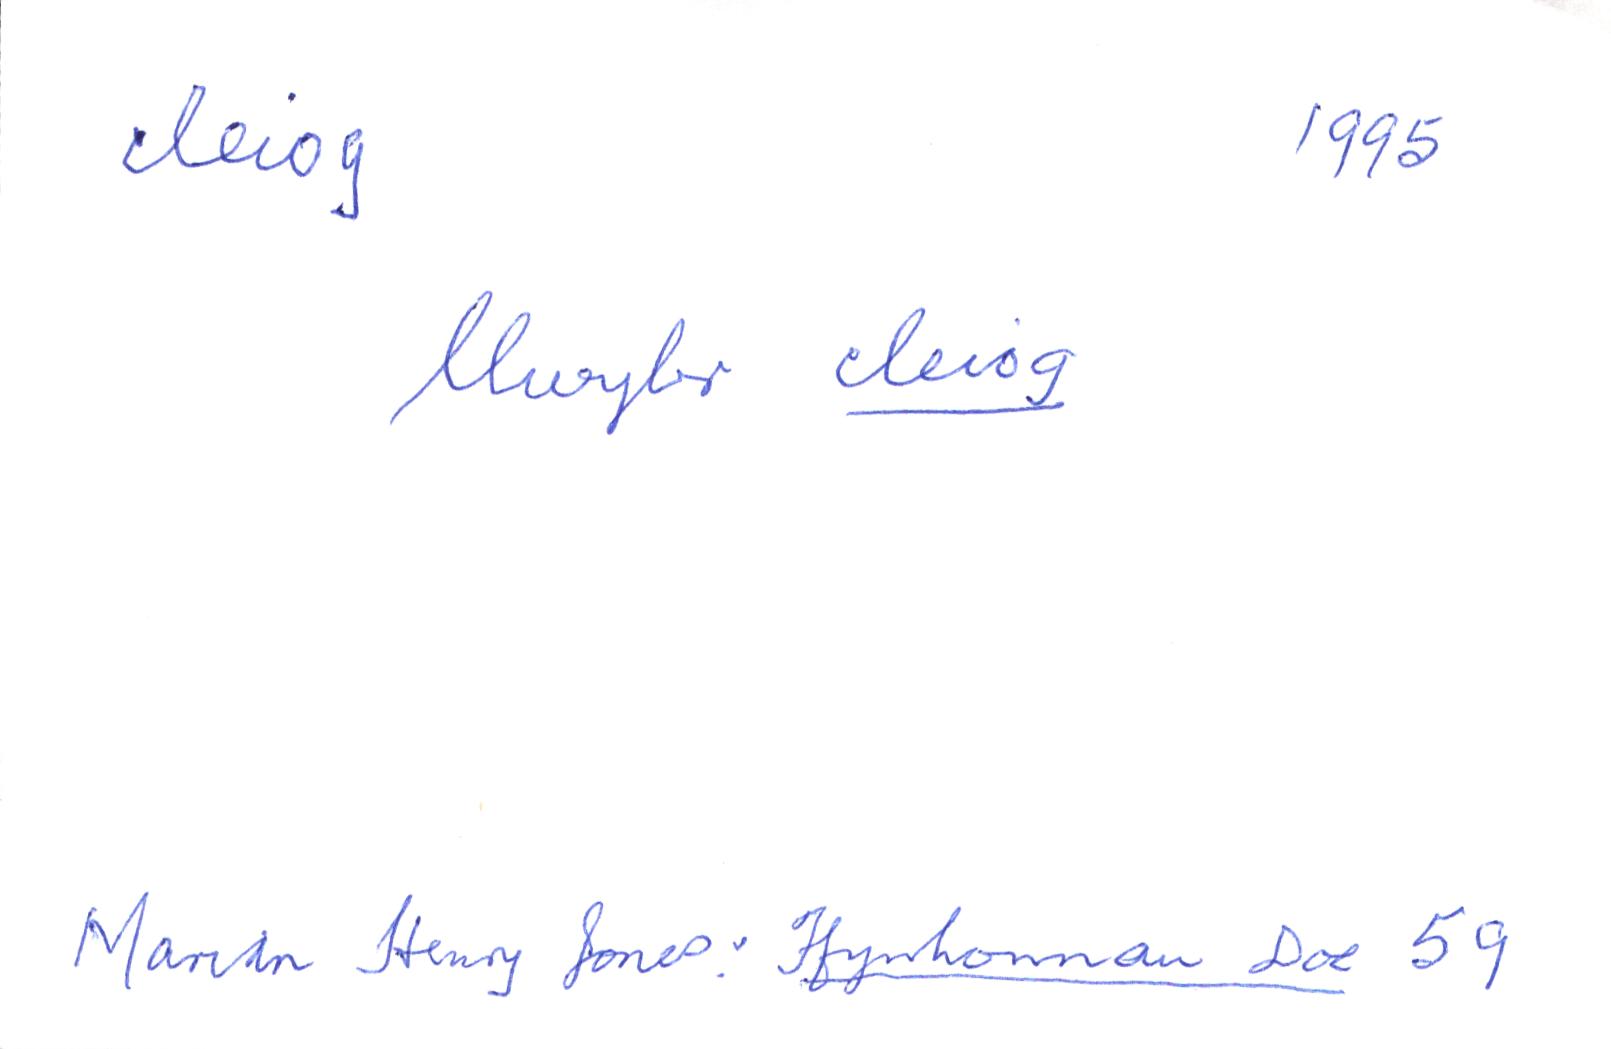 cleiog 1995
llwybr cleiog
Marian Henry Jones: Ffynhonnau Doe 59